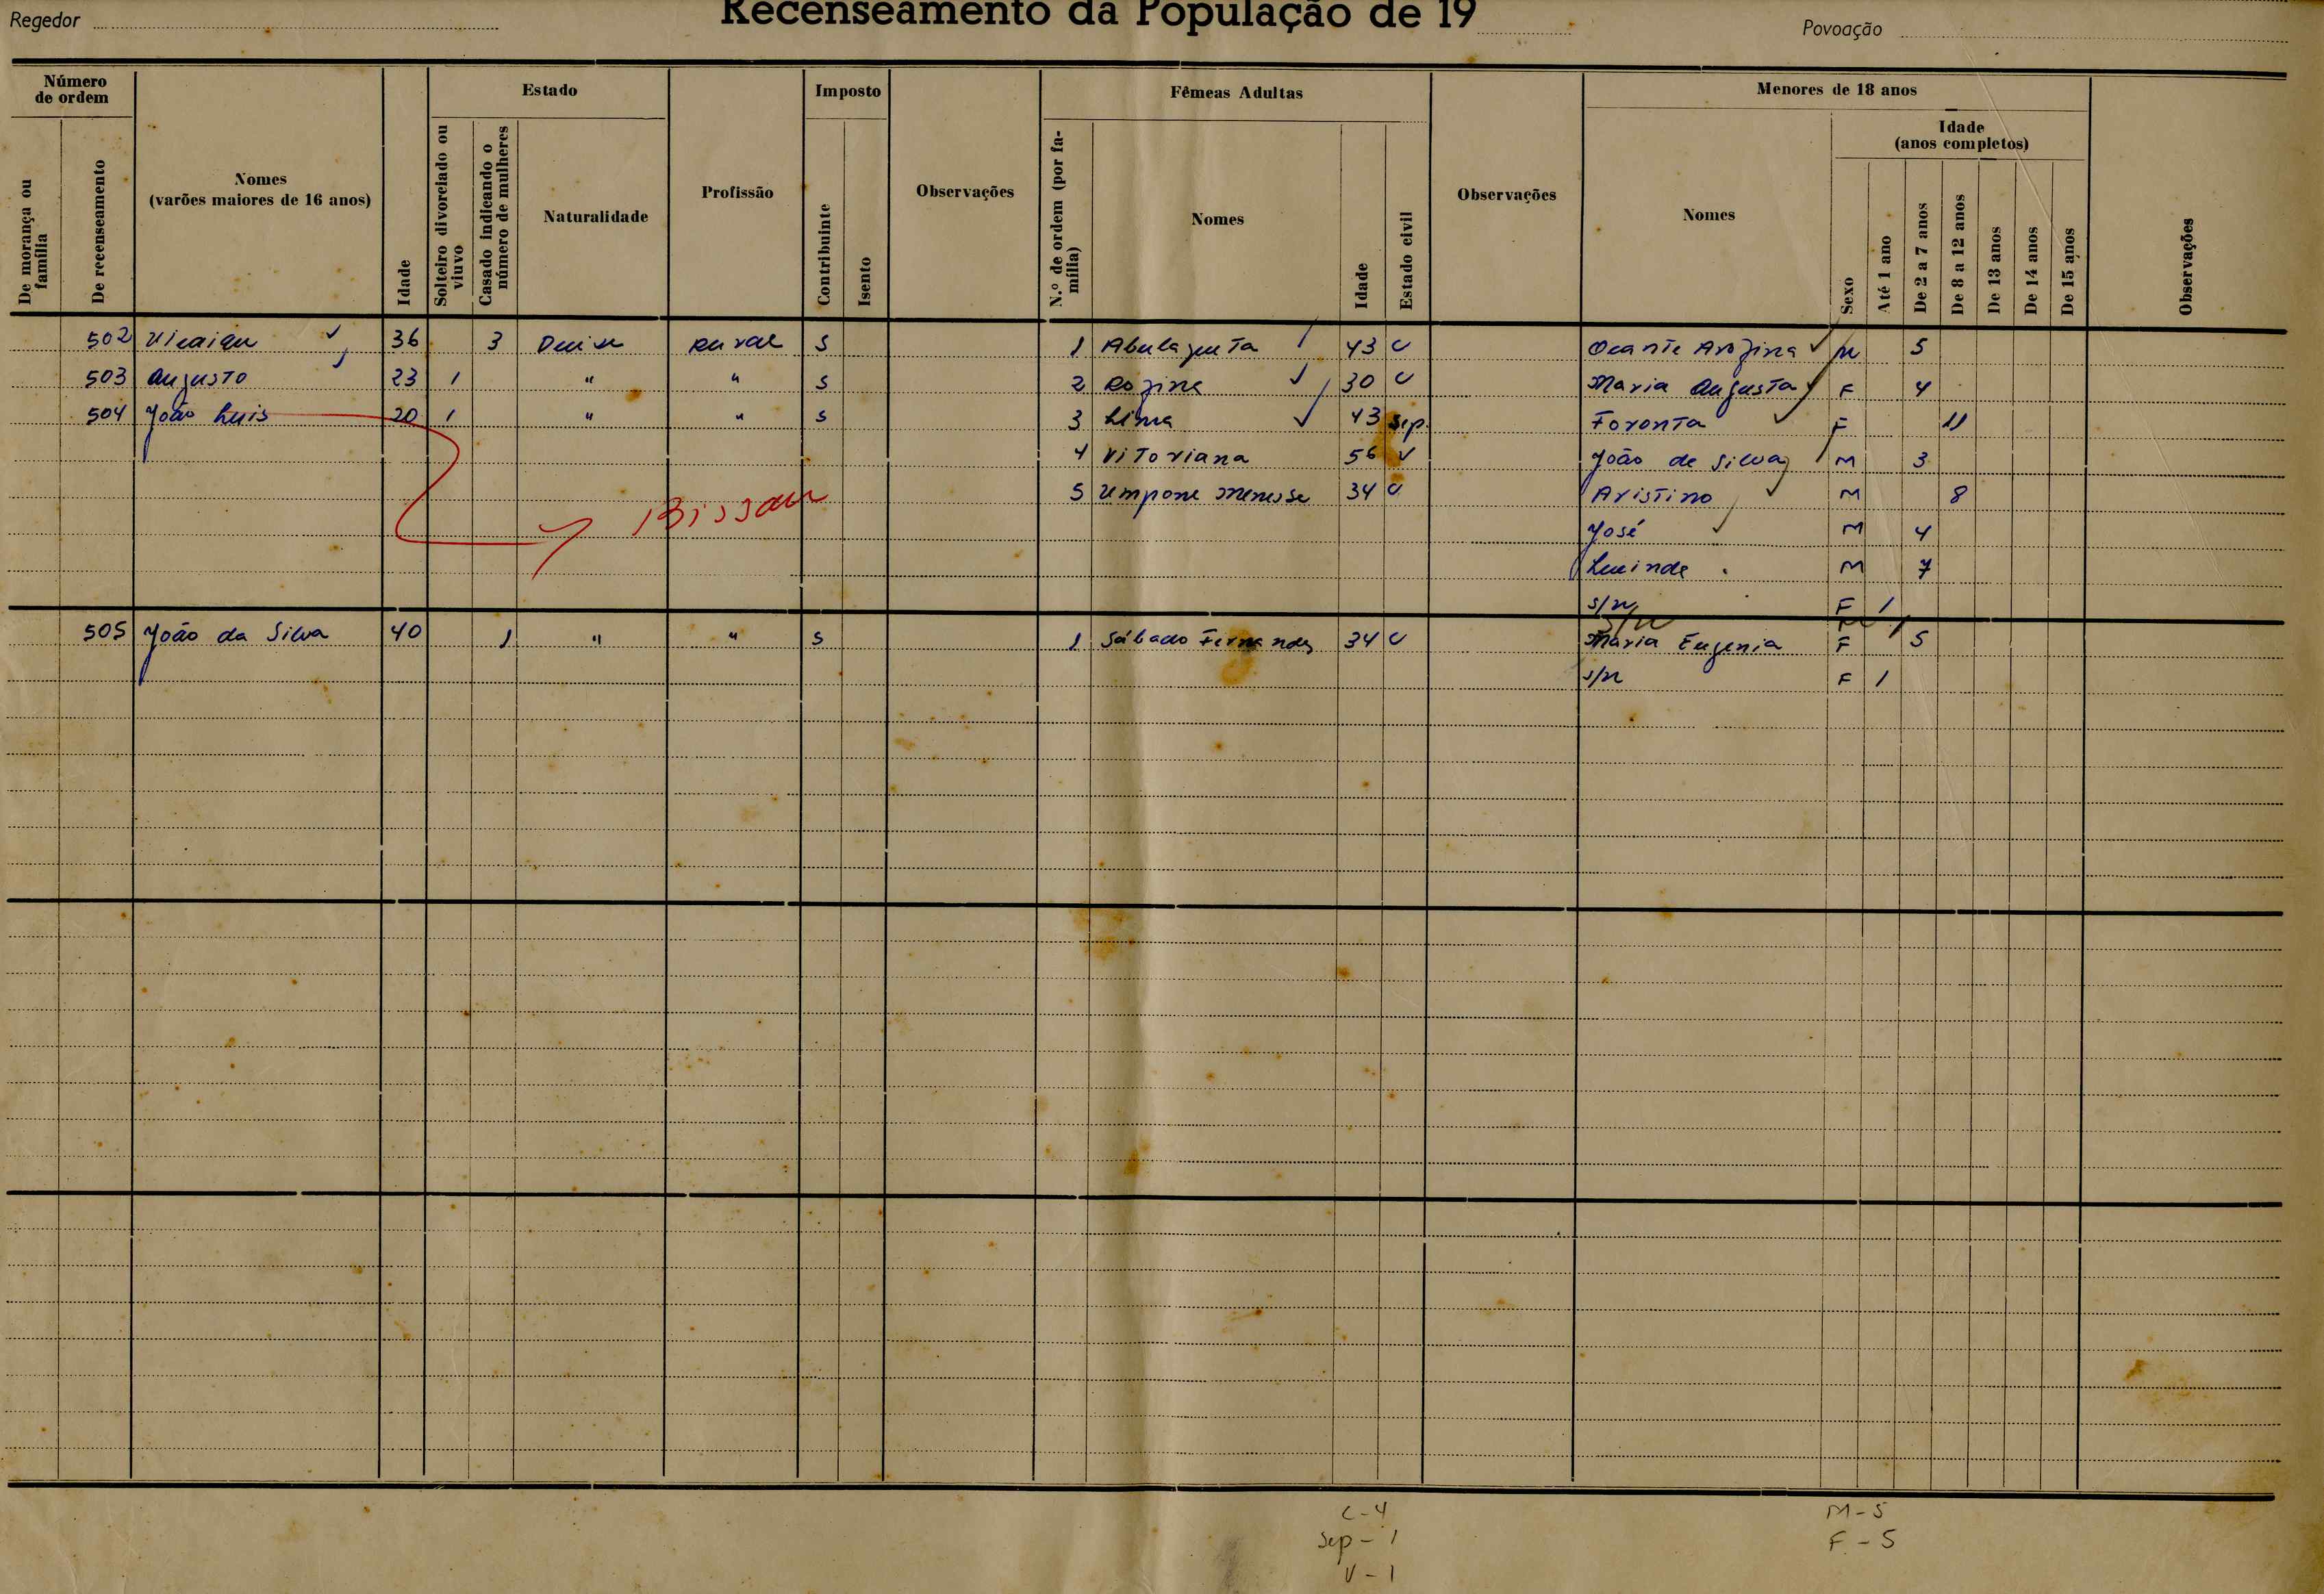 Regedor
Recenseamento da População de 19
Povoação
Número de ordem
De morança ou família
De recenseamento
Nomes (varões maiores de 16 anos)
Idade
Estado
Solteiro divorciado ou viuvo
Casado indicando o número de mulheres
Naturalidade
Profissão
Imposto
Contribuinte
Isento
Observações
Fêmeas Adultas
N.º de ordem (por família)
Nomes
Idade
Estado civil
Observações
Menores de 18 anos
Nomes
Idade (anos completos)
Sexo
Até 1 ano
De 2 a 7 anos
De 8 a 12 anos
De 13 anos
De 14 anos
De 15 anos
Observações
502 36 3 Rural S 1 43 C M 5
503 Augusto 23 1 " " S 2 Rozina 30 C Maria Augusta F 4
504 João Luis 20 1 " " S 3 Lima 43 Sep. Foronta F 11
4 Vitoriana 56 V João de Silva M 3
5 34 C Aristino M 8
Bissau
José M 4
Lucinda M 7
s/n F 1
S/N M 1
505 João da Silva 40 1 " " S 1 Sábado Fernandes 34 C Maria Eugenia F 5
s/n F 1
C - 4
Sep - 1
V - 1
M - 5
F - 5